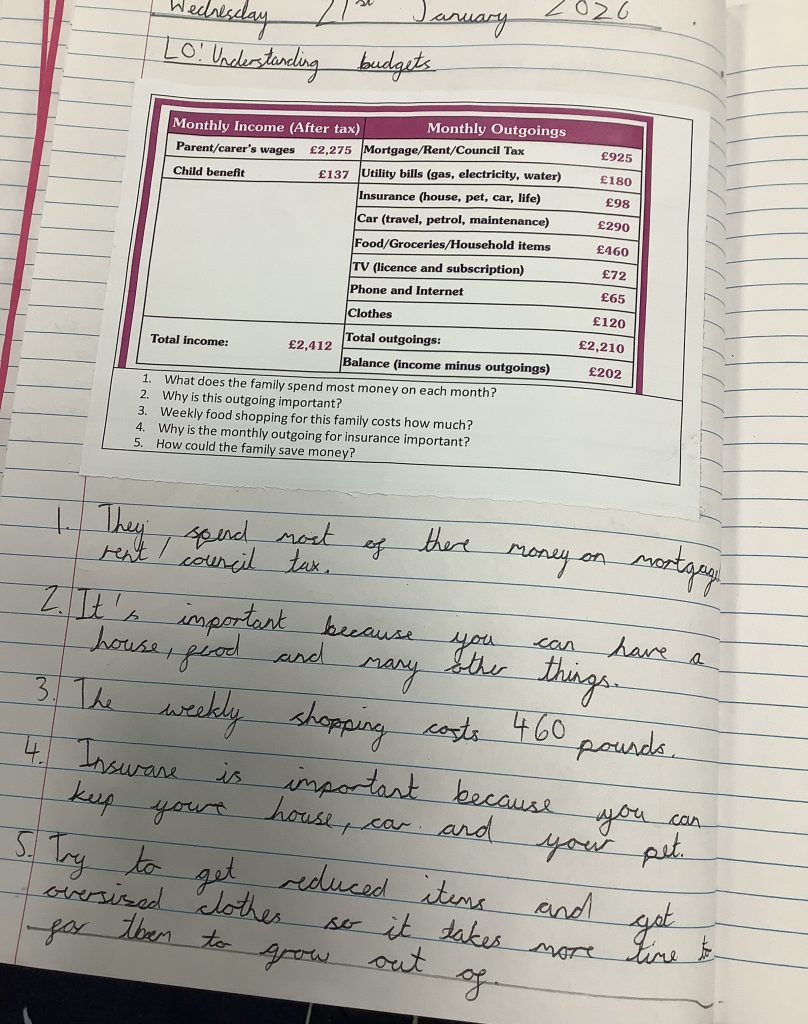 Wednesday 21st January 2026
LO: Understanding budgets
Monthly Income (After tax) Monthly Outgoings
Parent/carer's wages £2,275 Mortgage/Rent/Council Tax £925
Child benefit £137 Utility bills (gas, electricity, water) £180
Insurance (house, pet, car, life) £98
Car (travel, petrol, maintenance) £290
Food/Groceries/Household items £460
TV (licence and subscription) £72
Phone and Internet £65
Clothes £120
Total income: £2,412 Total outgoings: £2,210
Balance (income minus outgoings) £202
1. What does the family spend most money on each month?
2. Why is this outgoing important?
3. Weekly food shopping for this family costs how much?
4. Why is the monthly outgoing for insurance important?
5. How could the family save money?
1. They spend most of there money on mortgage
rent / council tax.
2. It's important because you can have a
house, food and many other things.
3. The weekly shopping costs 460 pounds.
4. Insurane is important because you can
keep youre house, car. and your pet.
5. Try to get reduced items and got
oversized clothes so it takes more time to
for them to grow out of.